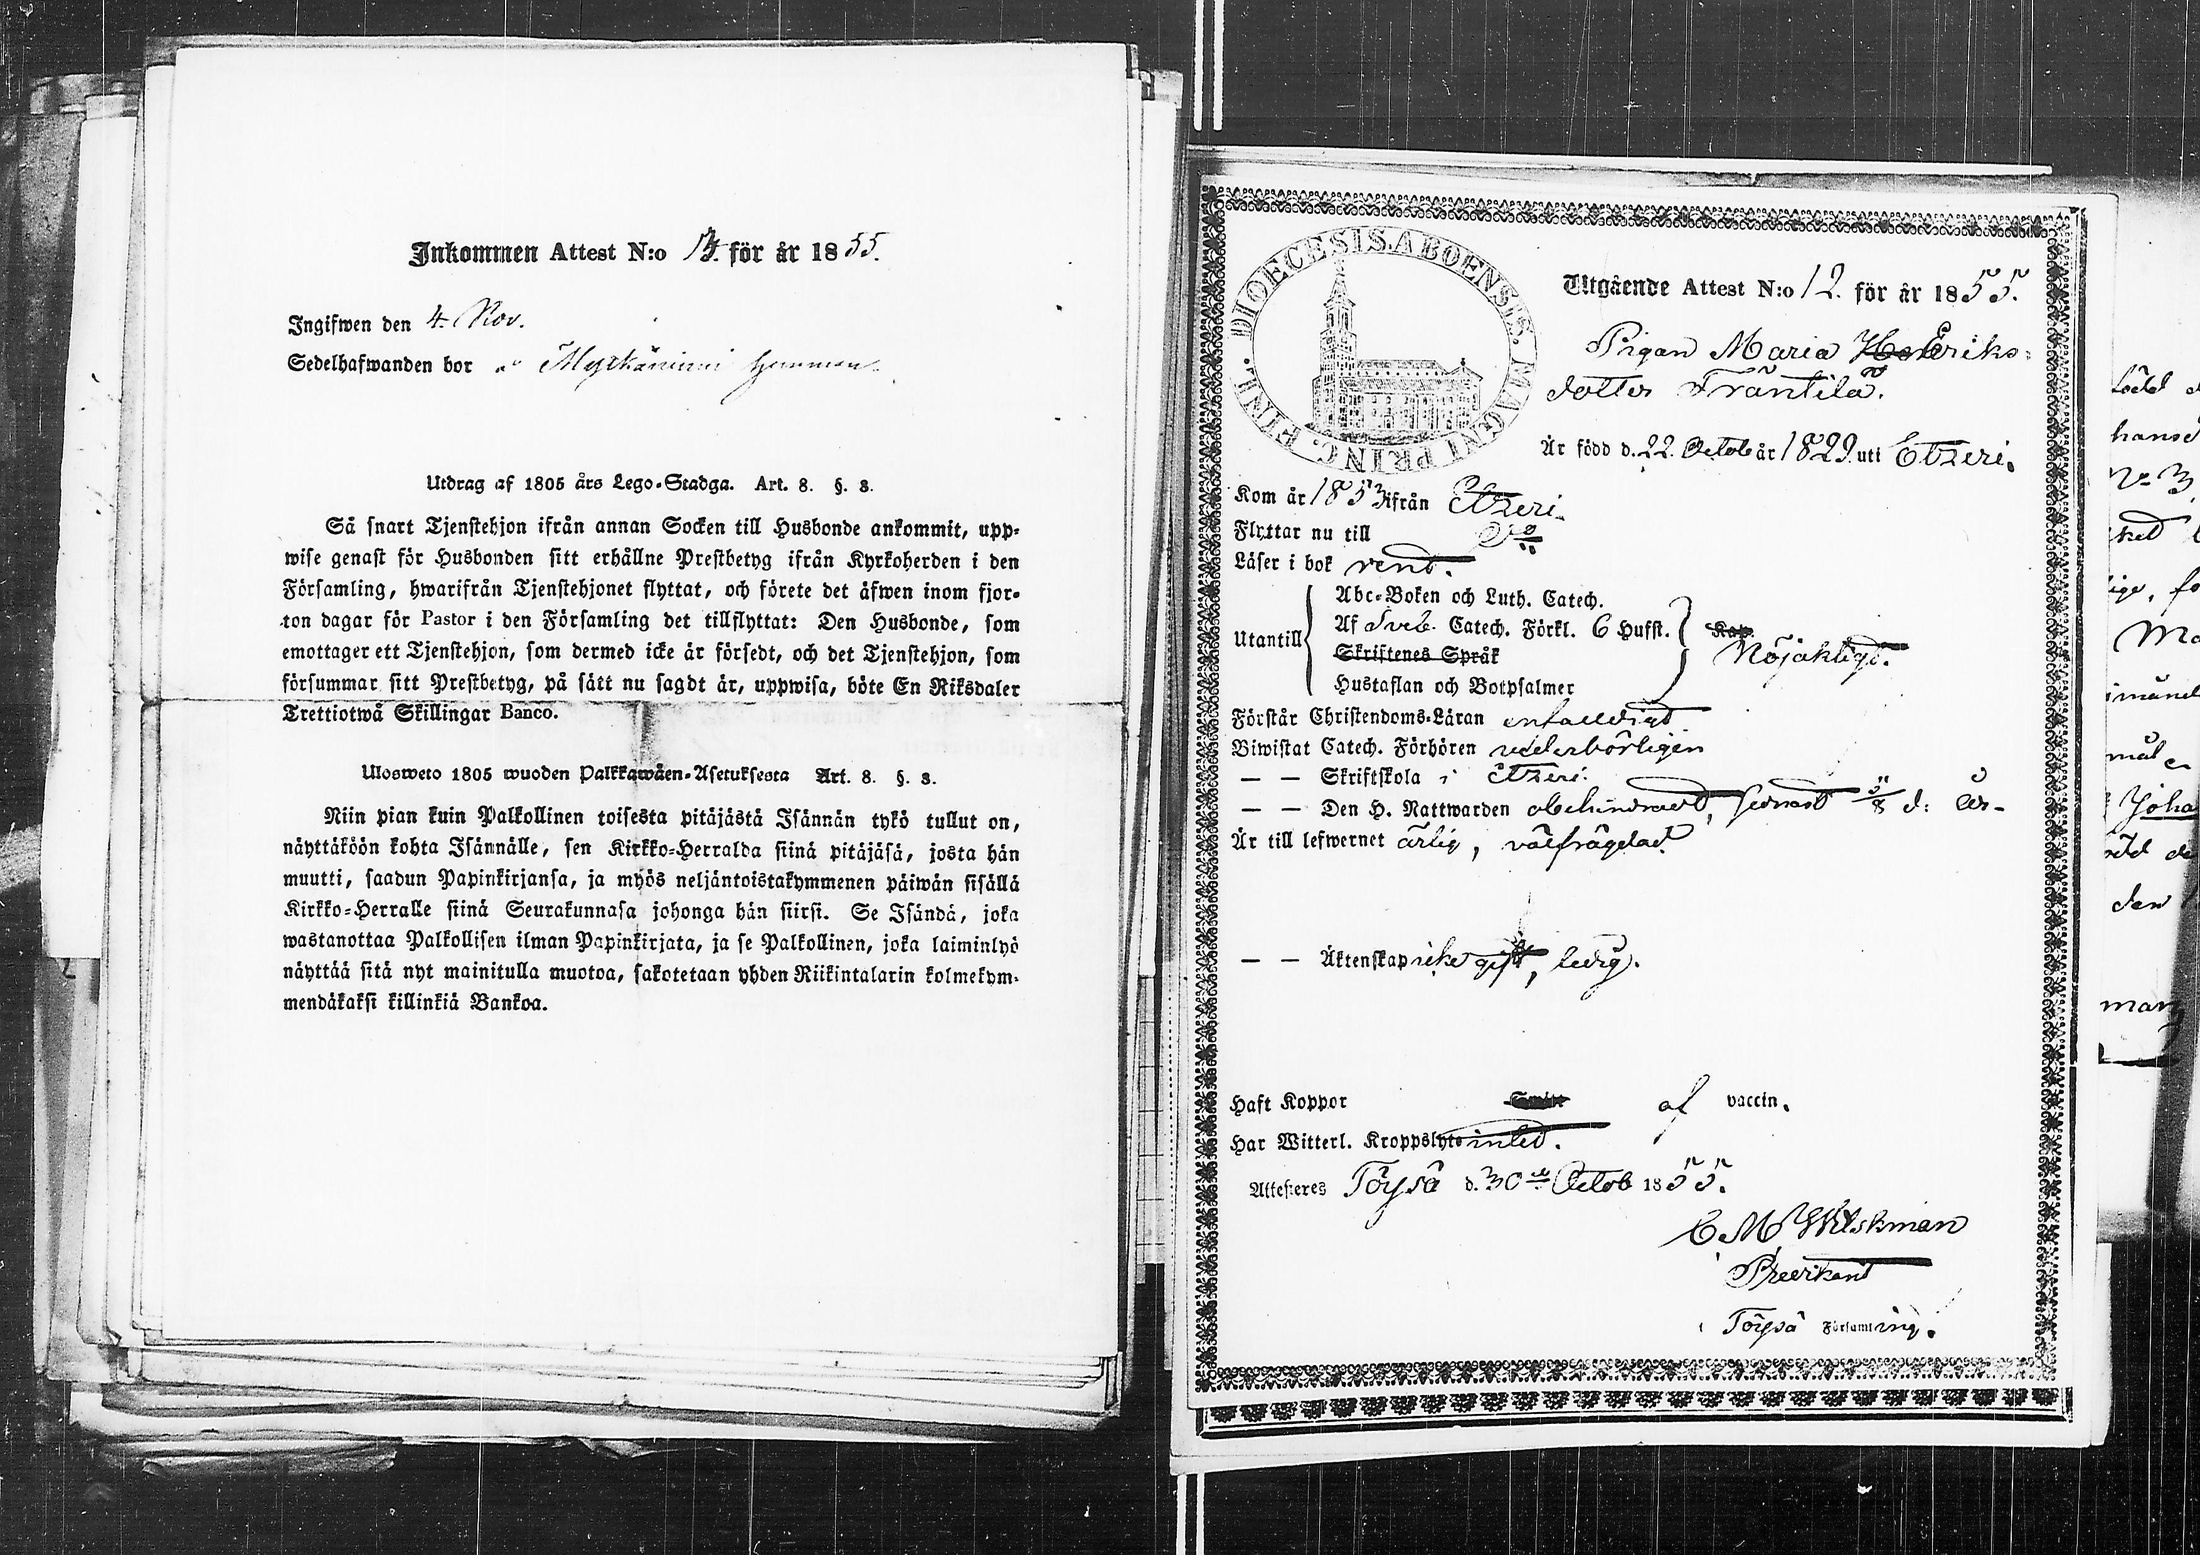 Inkommen Attest N:o för år 1855.
Ingifwen den 4. Nov.
Sedelhafwanden bor å hemman.
Utdrag af 1805 års Lego-Stadga. Art. 8. §. 8.
Så snart Tjenstehjon ifrån annan Socken till Husbonde ankommit, upp-
wise genast för Husbonden sitt erhållne Prestbetyg ifrån Kyrkoherden i den
Församling, hwarifrån Tjenstehjonet flyttat, och förete det äfwen inom fjor-
ton dagar för Pastor i den Församling det tillflyttat: Den Husbonde, som
emottager ett Tjenstehjon, som dermed icke är försedt, och det Tjenstehjon, som
försummar sitt Prestbetyg, på sätt nu sagdt är, uppwisa, böte En Riksdaler
Trettiotwå Skillingar Banco.
Ulosweto 1805 wuoden Palkkawäen-Asetuksesta Art. 8. §. 8.
Niin pian kuin Palkollinen toisesta pitäjästä Isännän tykö tullut on,
näyttäköön kohta Isännälle, sen Kirkko-Herralda siinä pitäjäsä, josta hän
muutti, saadun Papinkirjansa, ja myös neljäntoistakymmenen päiwän sisällä
Kirkko-Herralle siinä Seurakunnasa johonga hän siirsi. Se Isändä, joka
wastanottaa Palkollisen ilman Papinkirjata, ja se Palkollinen, joka laiminlyö
näyttää sitä nyt mainitulla muotoa, sakotetaan yhden Riikintalarin kolmekym-
mendäkaksi killinkiä Bankoa.
DIOECESIS. ABOENSIS. MAGNI PRINC. FINL.
Utgående Attest N:o 12. för år 1855.
Pigan Maria Eriks-
dotter Träntilä.
Är född d. 22 Octob år 1829 uti Etzeri.
Kom år 1853 ifrån Etzeri
Flyttar nu till Do
Läser i bok rent.
Utantill
Abc-Boken och Luth. Catech.
Af Sveb. Catech. Förkl. 6 Hufst.
Skriftenes Språk
Hustaflan och Botpsalmer
Kap.
Nöjaktigt.
Förstår Christendoms-Läran enfaldigt
Biwistat Catech. Förhören vederbörligen
— — Skriftskola i Etzeri.
— — Den H. Nattwarden obehindradt, sednast 5/8 d: år-
Är till lefwernet ärlig, välfrägdad.
— — Äktenskap icke gift, ledig.
Haft Koppor af vaccin.
Har Witterl. Kroppslyte intet.
Attesteres Töysä d. 30de Octob 1855.
C M Wilskman
Predikant
i Töysä Församling.